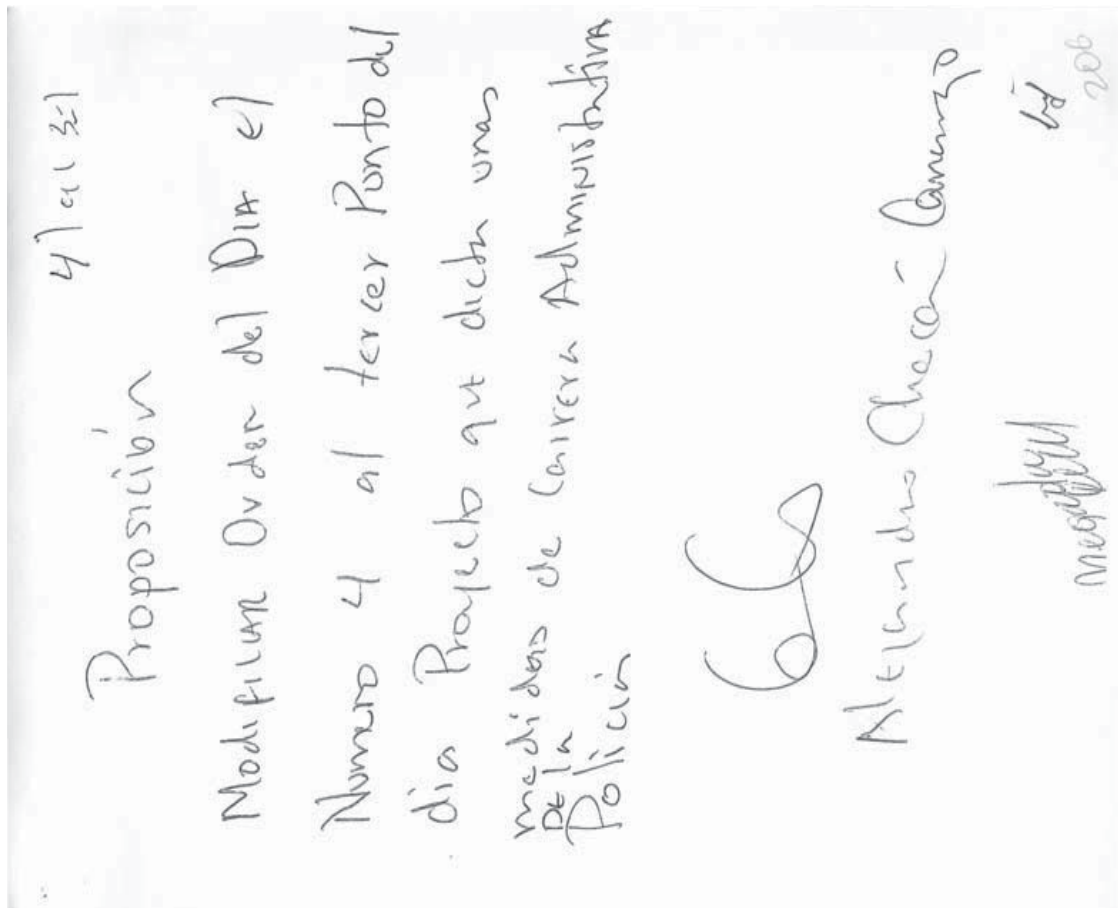 4) al 3:1
Proposición
Modificar Orden del DIA el
Numero 4 al tercer Punto del
dia Proyecto que dicta unas
medidas de Carrera Administrativa
DE la
Policia
Alejandro Chacón Camargo